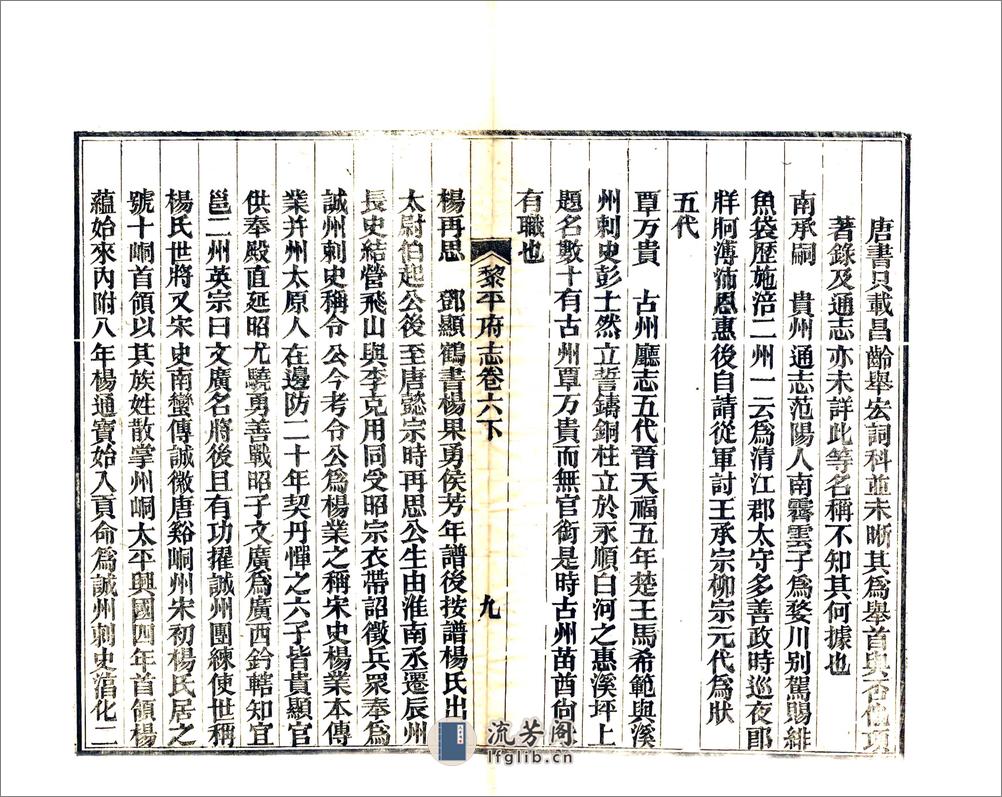 唐書只載昌齡舉宏詞科並未晰其爲舉首與否他項
著錄及通志亦未詳此等名稱不知其何據也
南承嗣　貴州通志范陽人南霽雲子爲婺川別駕賜緋
魚袋歷施涪二州一云爲清江郡太守多善政時巡夜郎
牂牁溥沛恩惠後自請從軍討王承宗柳宗元代爲狀
五代
覃万貴　古州廳志五代晉天福五年楚王馬希範與溪
州刺史彭士然立誓鑄銅柱立於永順白河之惠溪坪上
題名數十有古州覃万貴而無官銜是時古州苗酋尙
有職也
黎平府志卷六下
九
楊再思　鄧顯鶴書楊果勇侯芳年譜後按譜楊氏出
太尉伯起公後至唐懿宗時再思公生由淮南丞遷辰州
長史結營飛山與李克用同受昭宗衣帶詔徵兵眾奉爲
誠州刺史稱令公今考令公爲楊業之稱宋史楊業本傳
業并州太原人在邊防二十年契丹憚之六子皆貴顯官
供奉殿直延昭尤驍勇善戰昭子文廣爲廣西鈐轄知宜
邕二州英宗曰文廣名將後且有功擢誠州團練使世稱
楊氏世將又宋史南蠻傳誠微唐谿峒州宋初楊氏居之
號十峒首領以其族姓散掌州峒太平興國四年首領楊
蘊始來內附八年楊通寶始入貢命爲誠州刺史淯化二
流芳閣
lfglib.cn